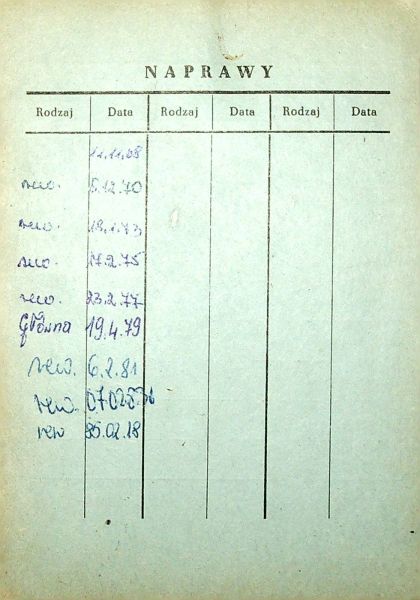 NAPRAWY
Rodzaj Data Rodzaj Data Rodzaj Data
11.11.68
rew. 5.12.70
rew. 18.1.73
rew. 17.2.75
rew. 23.2.77
Główna 19.4.79
rew. 6.2.81
rew.
rew 85.02.18